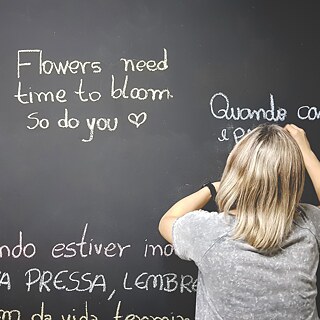 Flowers need
time to bloom.
So do you ♡
Quando
e
ndo estiver
PRESSA, LEMBRE
da vida